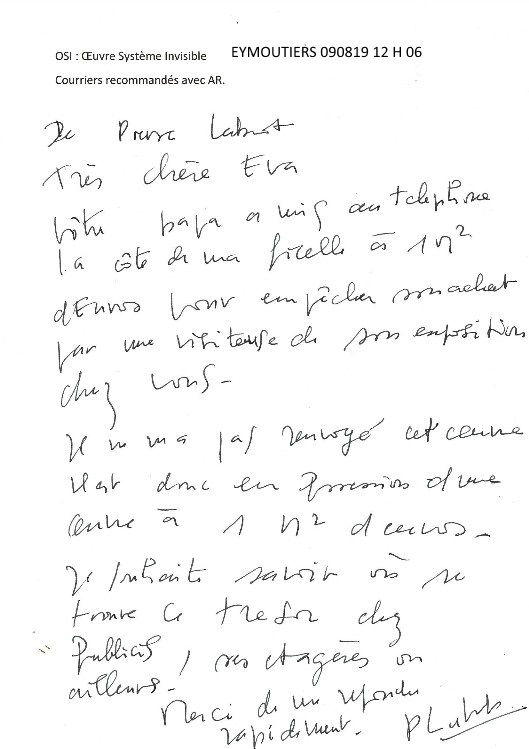 OSI : Œuvre Système Invisible EYMOUTIERS 090819 12 H 06
Courriers recommandés avec AR.
De Pierre
Très chère Eva
Votre papa a mis au telephone
la côte de ma ficelle à 1 M²
d'Euros pour empêcher son achat
par une visiteuse de son exposition
chez vous -
Il ne m'a pas renvoyé cet œuvre
Il est donc en Possession d'une
œuvre à 1 M² d'euros -
Je souhaite savoir où se
trouve ce tresor chez
Publicis, ses étagères ou
ailleurs -
Merci de me répondre
rapidement.